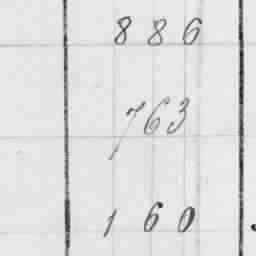 886
763
160